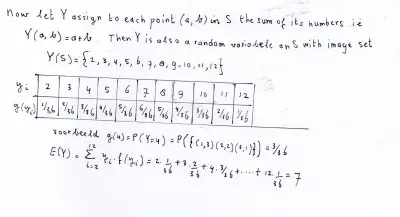 Now let Y assign to each point (a,b) in S the sum of its numbers i.e
Y(a,b) = a+b. Then Y is also a random variabele on S with image set
Y(S) = {2, 3, 4, 5, 6, 7, 8, 9, 10, 11, 12}
yi 2 3 4 5 6 7 8 9 10 11 12
g(yi) 1/36 2/36 3/36 4/36 5/36 6/36 5/36 4/36 3/36 2/36 1/36
voorbeeld g(4) = P(Y=4) = P({(1,3)(2,2)(3,1)}) = 3/36
E(Y) = Σ yi·f(yi) = 2·1/36 + 3·2/36 + 4·3/36 + ... + 12·1/36 = 7